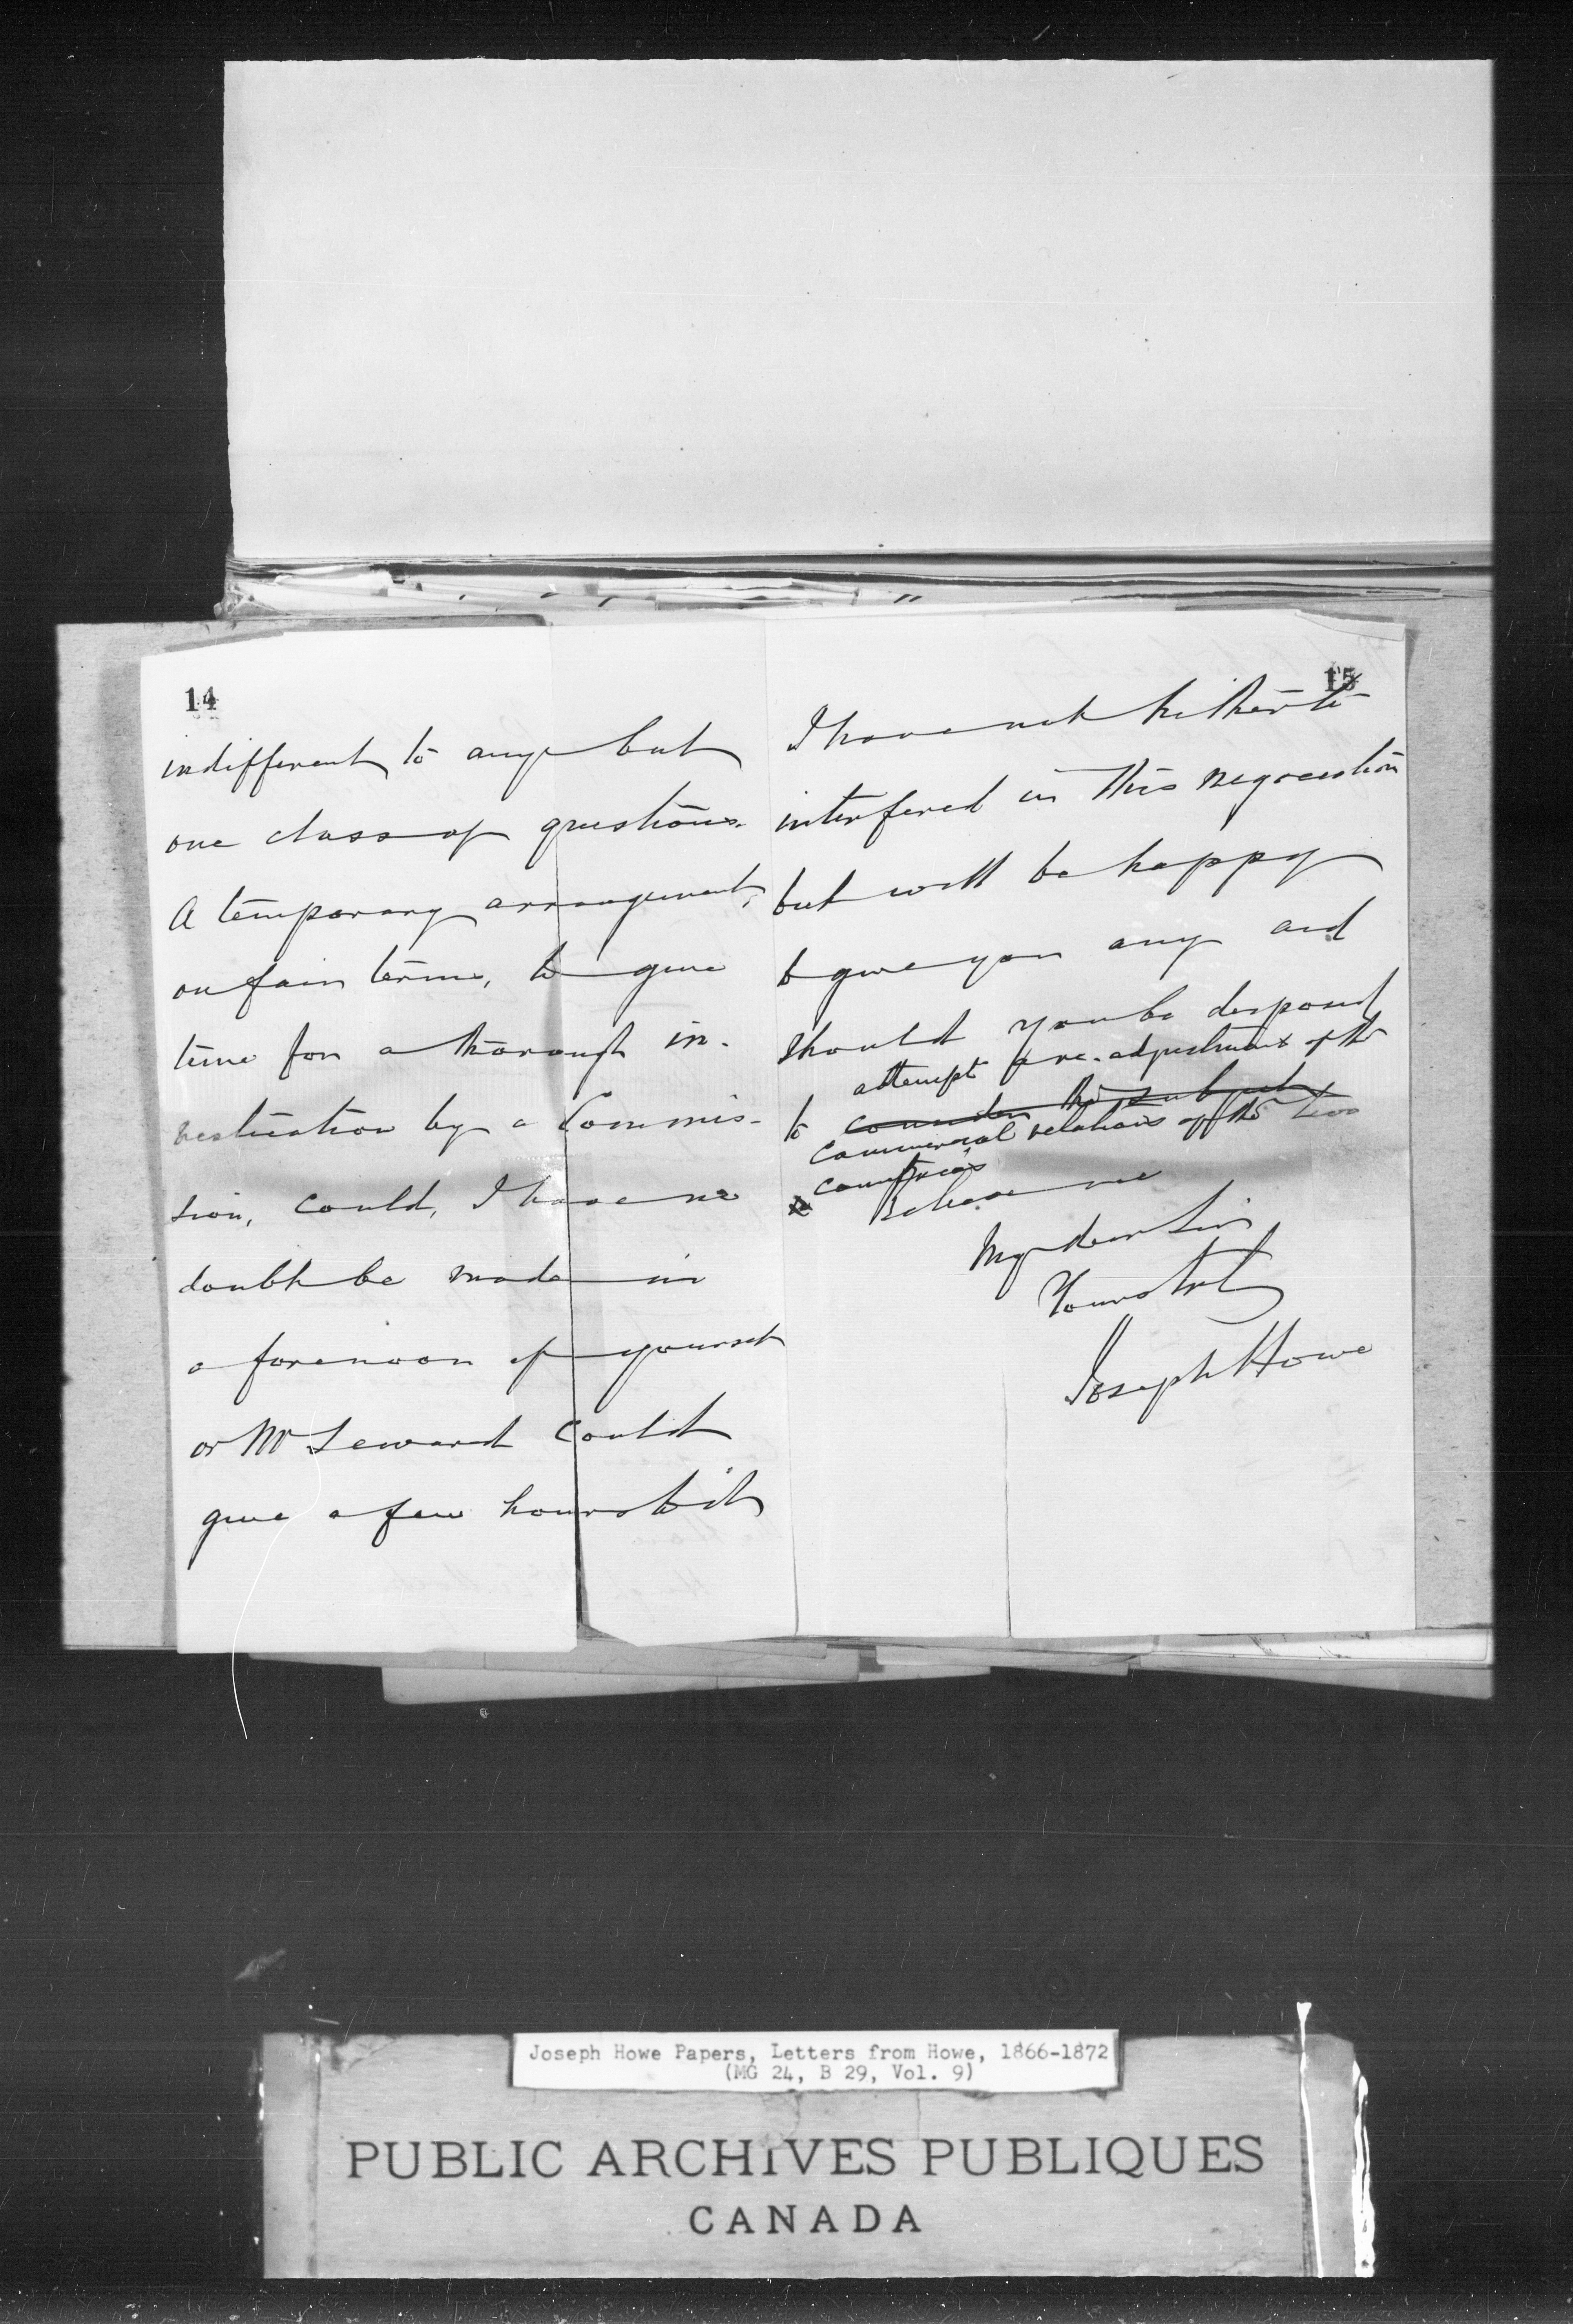 14
indifferent to any but
one class of questions.
A temporary arrangement,
on fair terms, to give
time for a thorough in-
vestication by a Commis-
sion, could, I have no
doubt be made in
a forenoon if yourself
or Mr Seward could
give a few hours to it
15
I have not hitherto
interfered in this negociation
but will be happy
to give you any aid
should you be disposed
attempt a re-adjustment of the
to consider the subject
commercial relations of the two
countries
Believe me
My dear Sir
Yours truly
Joseph Howe
Joseph Howe Papers, Letters from Howe, 1866-1872
(MG 24, B 29, Vol. 9)
PUBLIC ARCHIVES PUBLIQUES
CANADA